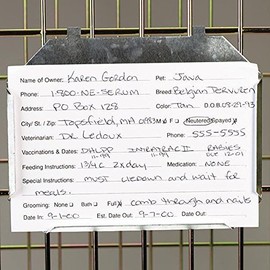 Name of Owner: Karen Gordon Pet: Java
Phone: 1-800-NE-SERUM Breed: Belgian Tervuren
Address: PO Box 128 Color: Tan D.O.B. 08-29-93
City/ St. / Zip: Topsfield, MA 01983 M F Neutered Spayed
Veterinarian: Dr Ledoux Phone: 555-5555
Vaccinations & Dates: DHLPP 11-99 INTRATRAC II 11-99 RABIES DUE 12-01
Feeding Instructions: 1 3/4 C 2x day Medication: NONE
Special Instructions: must liedown and wait for
meals.
Grooming: None Bath Full comb through and nails
Date In: 9-1-00 Est. Date Out: 9-7-00 Date Out: